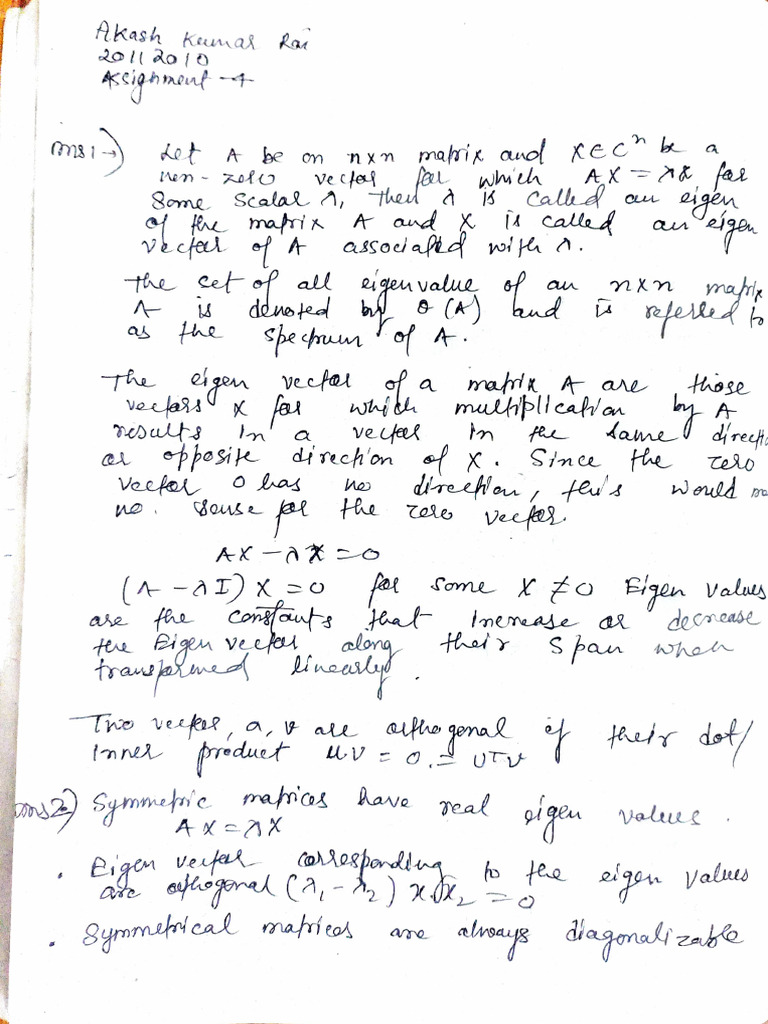 Akash Kumar Rai
20112010
Assignment - 4
Ans 1 →) Let A be an nxn matrix and X∈Cⁿ be a
non-zero vector for which AX = λX for
some scalar λ, then λ is called an eigen
of the matrix A and X is called an eigen
vector of A associated with λ.
The set of all eigenvalue of an nxn matrix
A is denoted by σ(A) and is referred to
as the spectrum of A.
The eigen vector of a matrix A are those
vectors X for which multiplication by A
results in a vector in the same directi
or opposite direction of X. Since the zero
vector 0 has no direction, this would ma
no sense for the zero vector.
AX - λX = 0
(A - λI) X = 0 for some X ≠ 0 Eigen values
are the constants that increase or decrease
the Eigen vector along their span when
transformed linearly.
Two vector, u, v are orthogonal if their dot/
inner product u.v = 0. = UTv
Ans 2) Symmetric matrices have real eigen values.
AX = λX
. Eigen vector corresponding to the eigen values
are orthogonal (λ₁ - λ₂) x₁ᵀx₂ = 0
. Symmetrical matrices are always diagonalizable